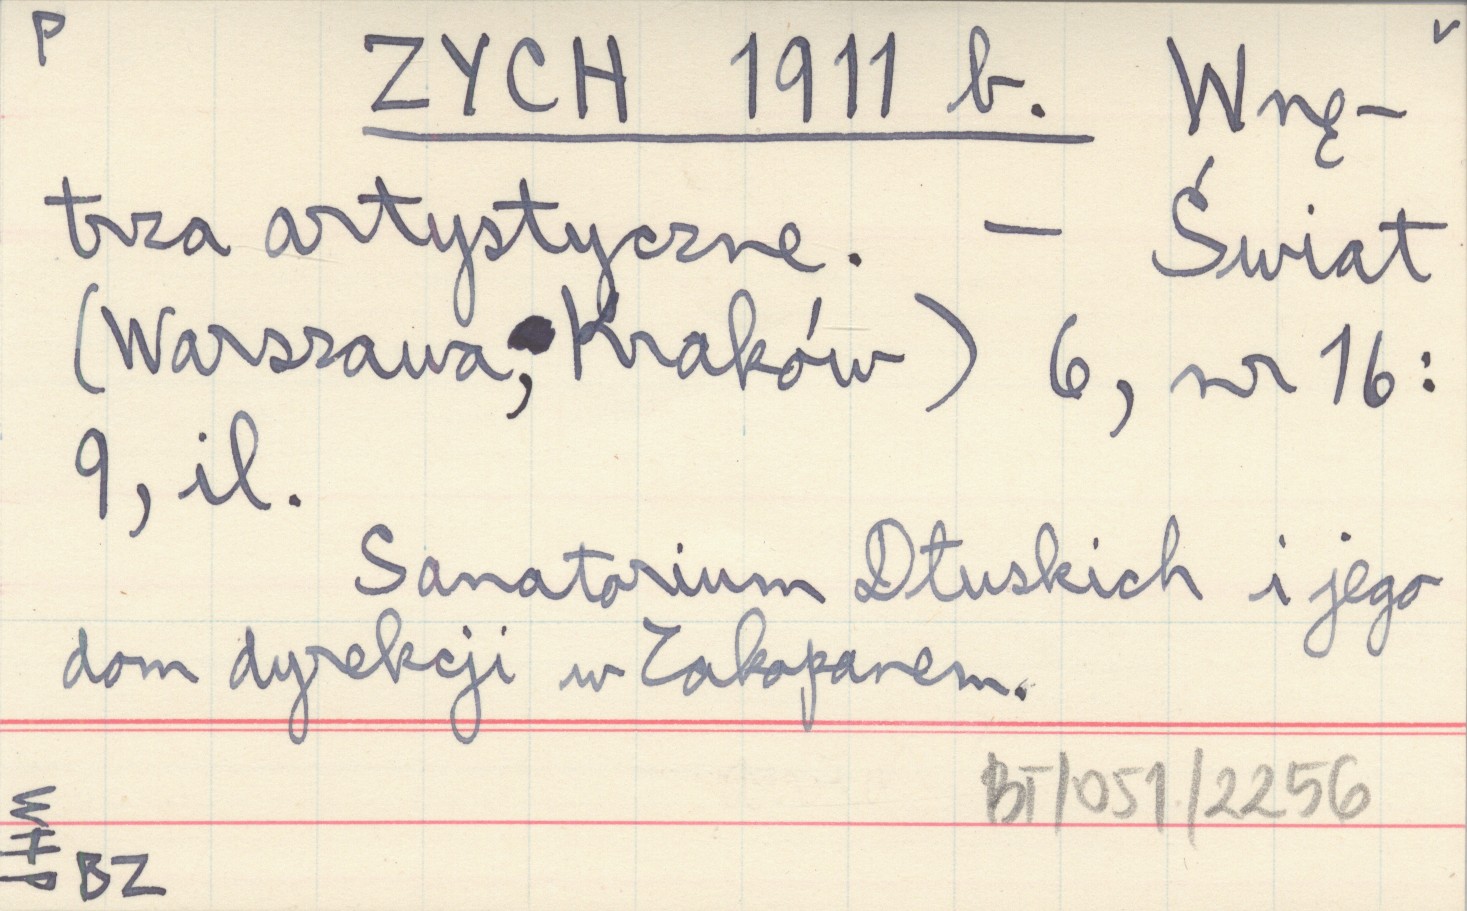 P ZYCH 1911 b. Wnę- v
trza artystyczne. — Świat
(Warszawa, Kraków) 6, nr 16:
9, il.
Sanatorium Dłuskich i jego
dom dyrekcji w Zakopanem.
BT/051/2256
BZ